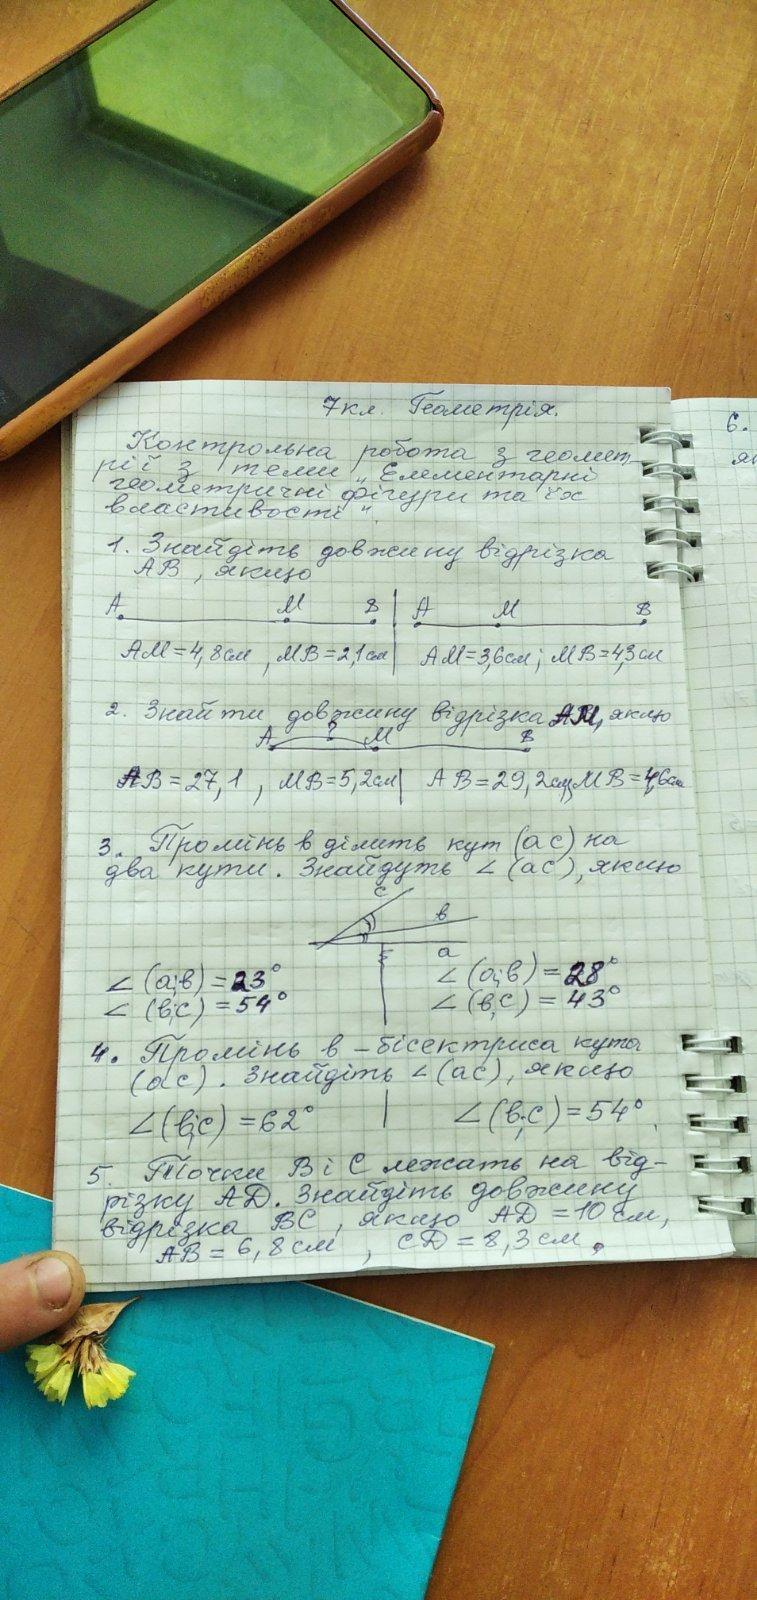 7кл. Геометрія.
Контрольна робота з геомет
рії з теми „Елементарні
геометричні фігури та їх
властивості"
1. Знайдіть довжину відрізка
АВ, якщо
А М В | А М В
АМ=4,8см, МВ=2,1см | АМ=3,6см; МВ=4,3см
2. Знайти довжину відрізка АМ, якщо
А ? М В
АВ=27,1, МВ=5,2см | АВ=29,2см, МВ=4,6см
3. Промінь в ділить кут (ас) на
два кути. Знайдуть ∠(ас), якщо
с
в
а
∠(а;в)=23° ∠(а;в)=28°
∠(в;с)=54° ∠(в,с)=43°
4. Промінь в – бісектриса кута
(ас). Знайдіть ∠(ас), якщо
∠(в;с)=62° | ∠(в;с)=54°
5. Точки В і С лежать на від-
різку АD. Знайдіть довжину
відрізка ВС, якщо АD=10см,
АВ=6,8см, СD=8,3см.
6.
як